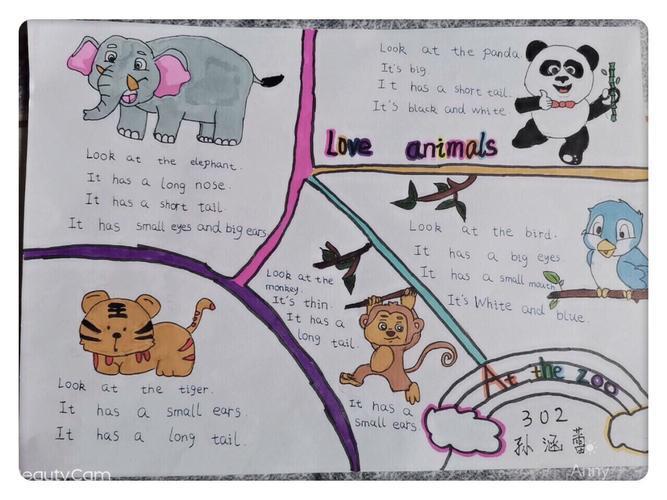 Look at the elephant.
It has a long nose.
It has a short tail.
It has small eyes and big ears.
Look at the panda.
It's big.
It has a short tail.
It's black and white
Love animals
Look at the bird.
It has a big eyes.
It has a small mouth
It's White and blue.
Look at the
monkey.
It's thin.
It has a
long tail.
It has a
small ears
Look at the tiger.
It has a small ears.
It has a long tail.
At the zoo
302
孙涵蕾
BeautyCam
Anny